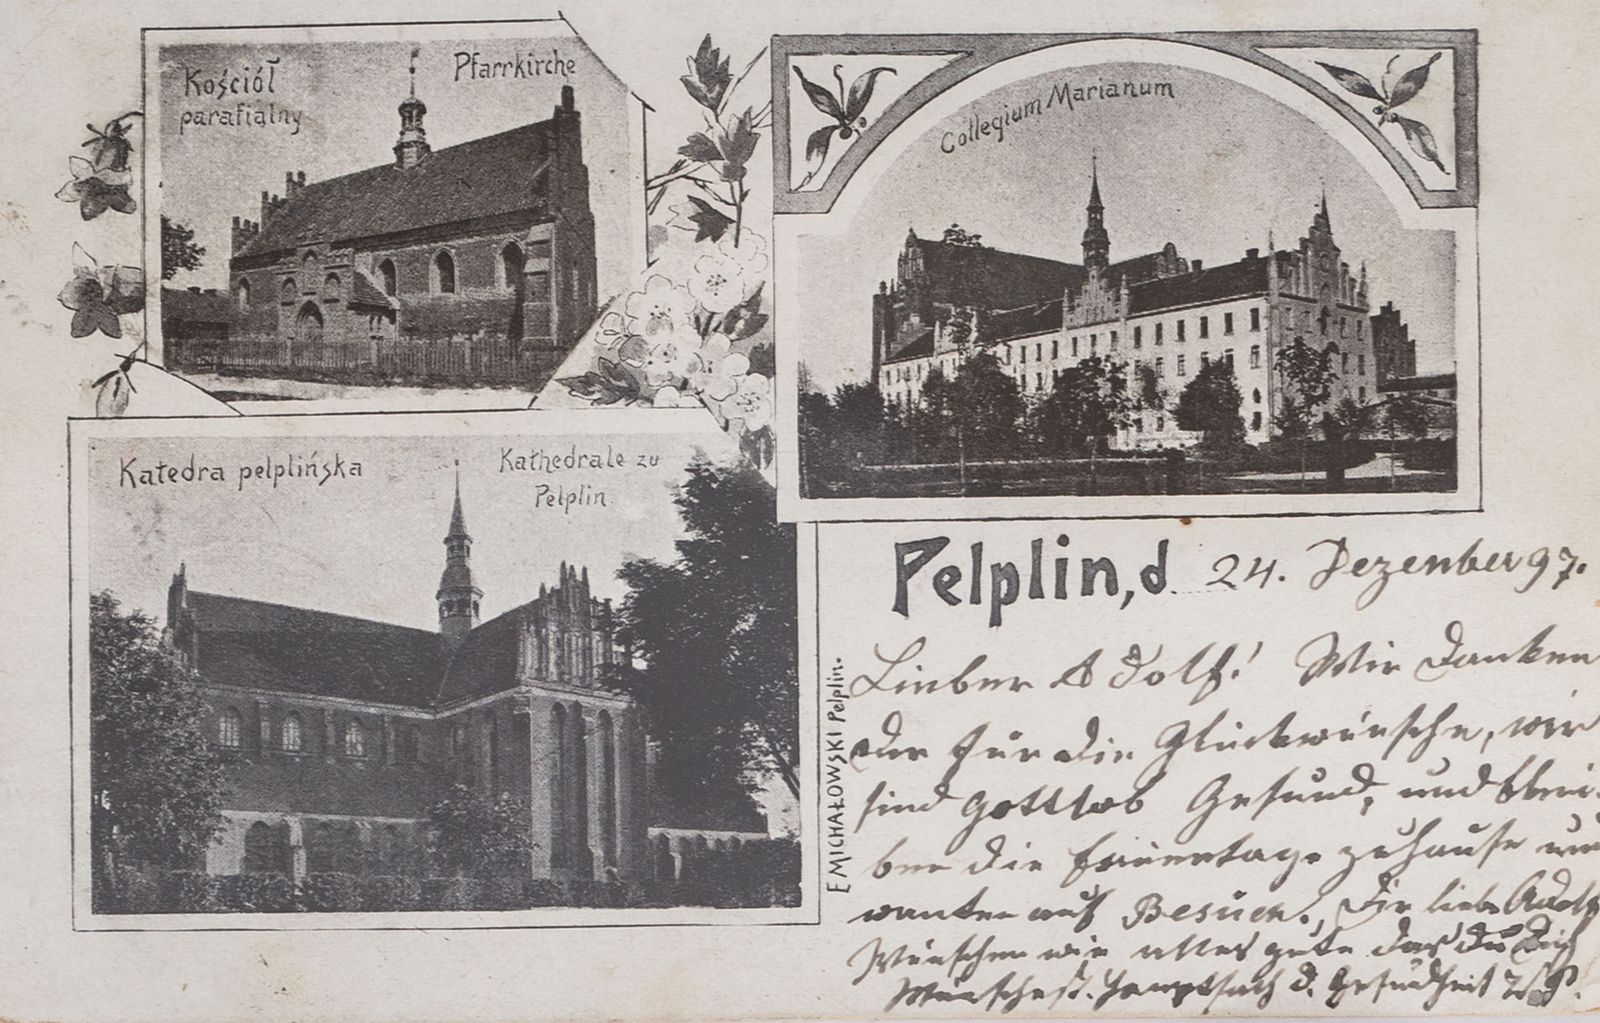 Kościół
parafialny
Pfarrkirche
Collegium Marianum
Katedra pelplińska
Kathedrale zu
Pelplin.
F MICHAŁOWSKI Pelplin.
Pelplin, d. 24. Dezember 97.
Lieber Adolf! Wir danken
Dir für die Glückwünsche, wir
sind Gottlob Gesund, und blei-
ben die Feiertage zuhause
wanten auf Besuch. Dir liebe Adolf
Wünschen wir alles gute das Du Dich
Wünschest. Hauptsach d. Gesundheit